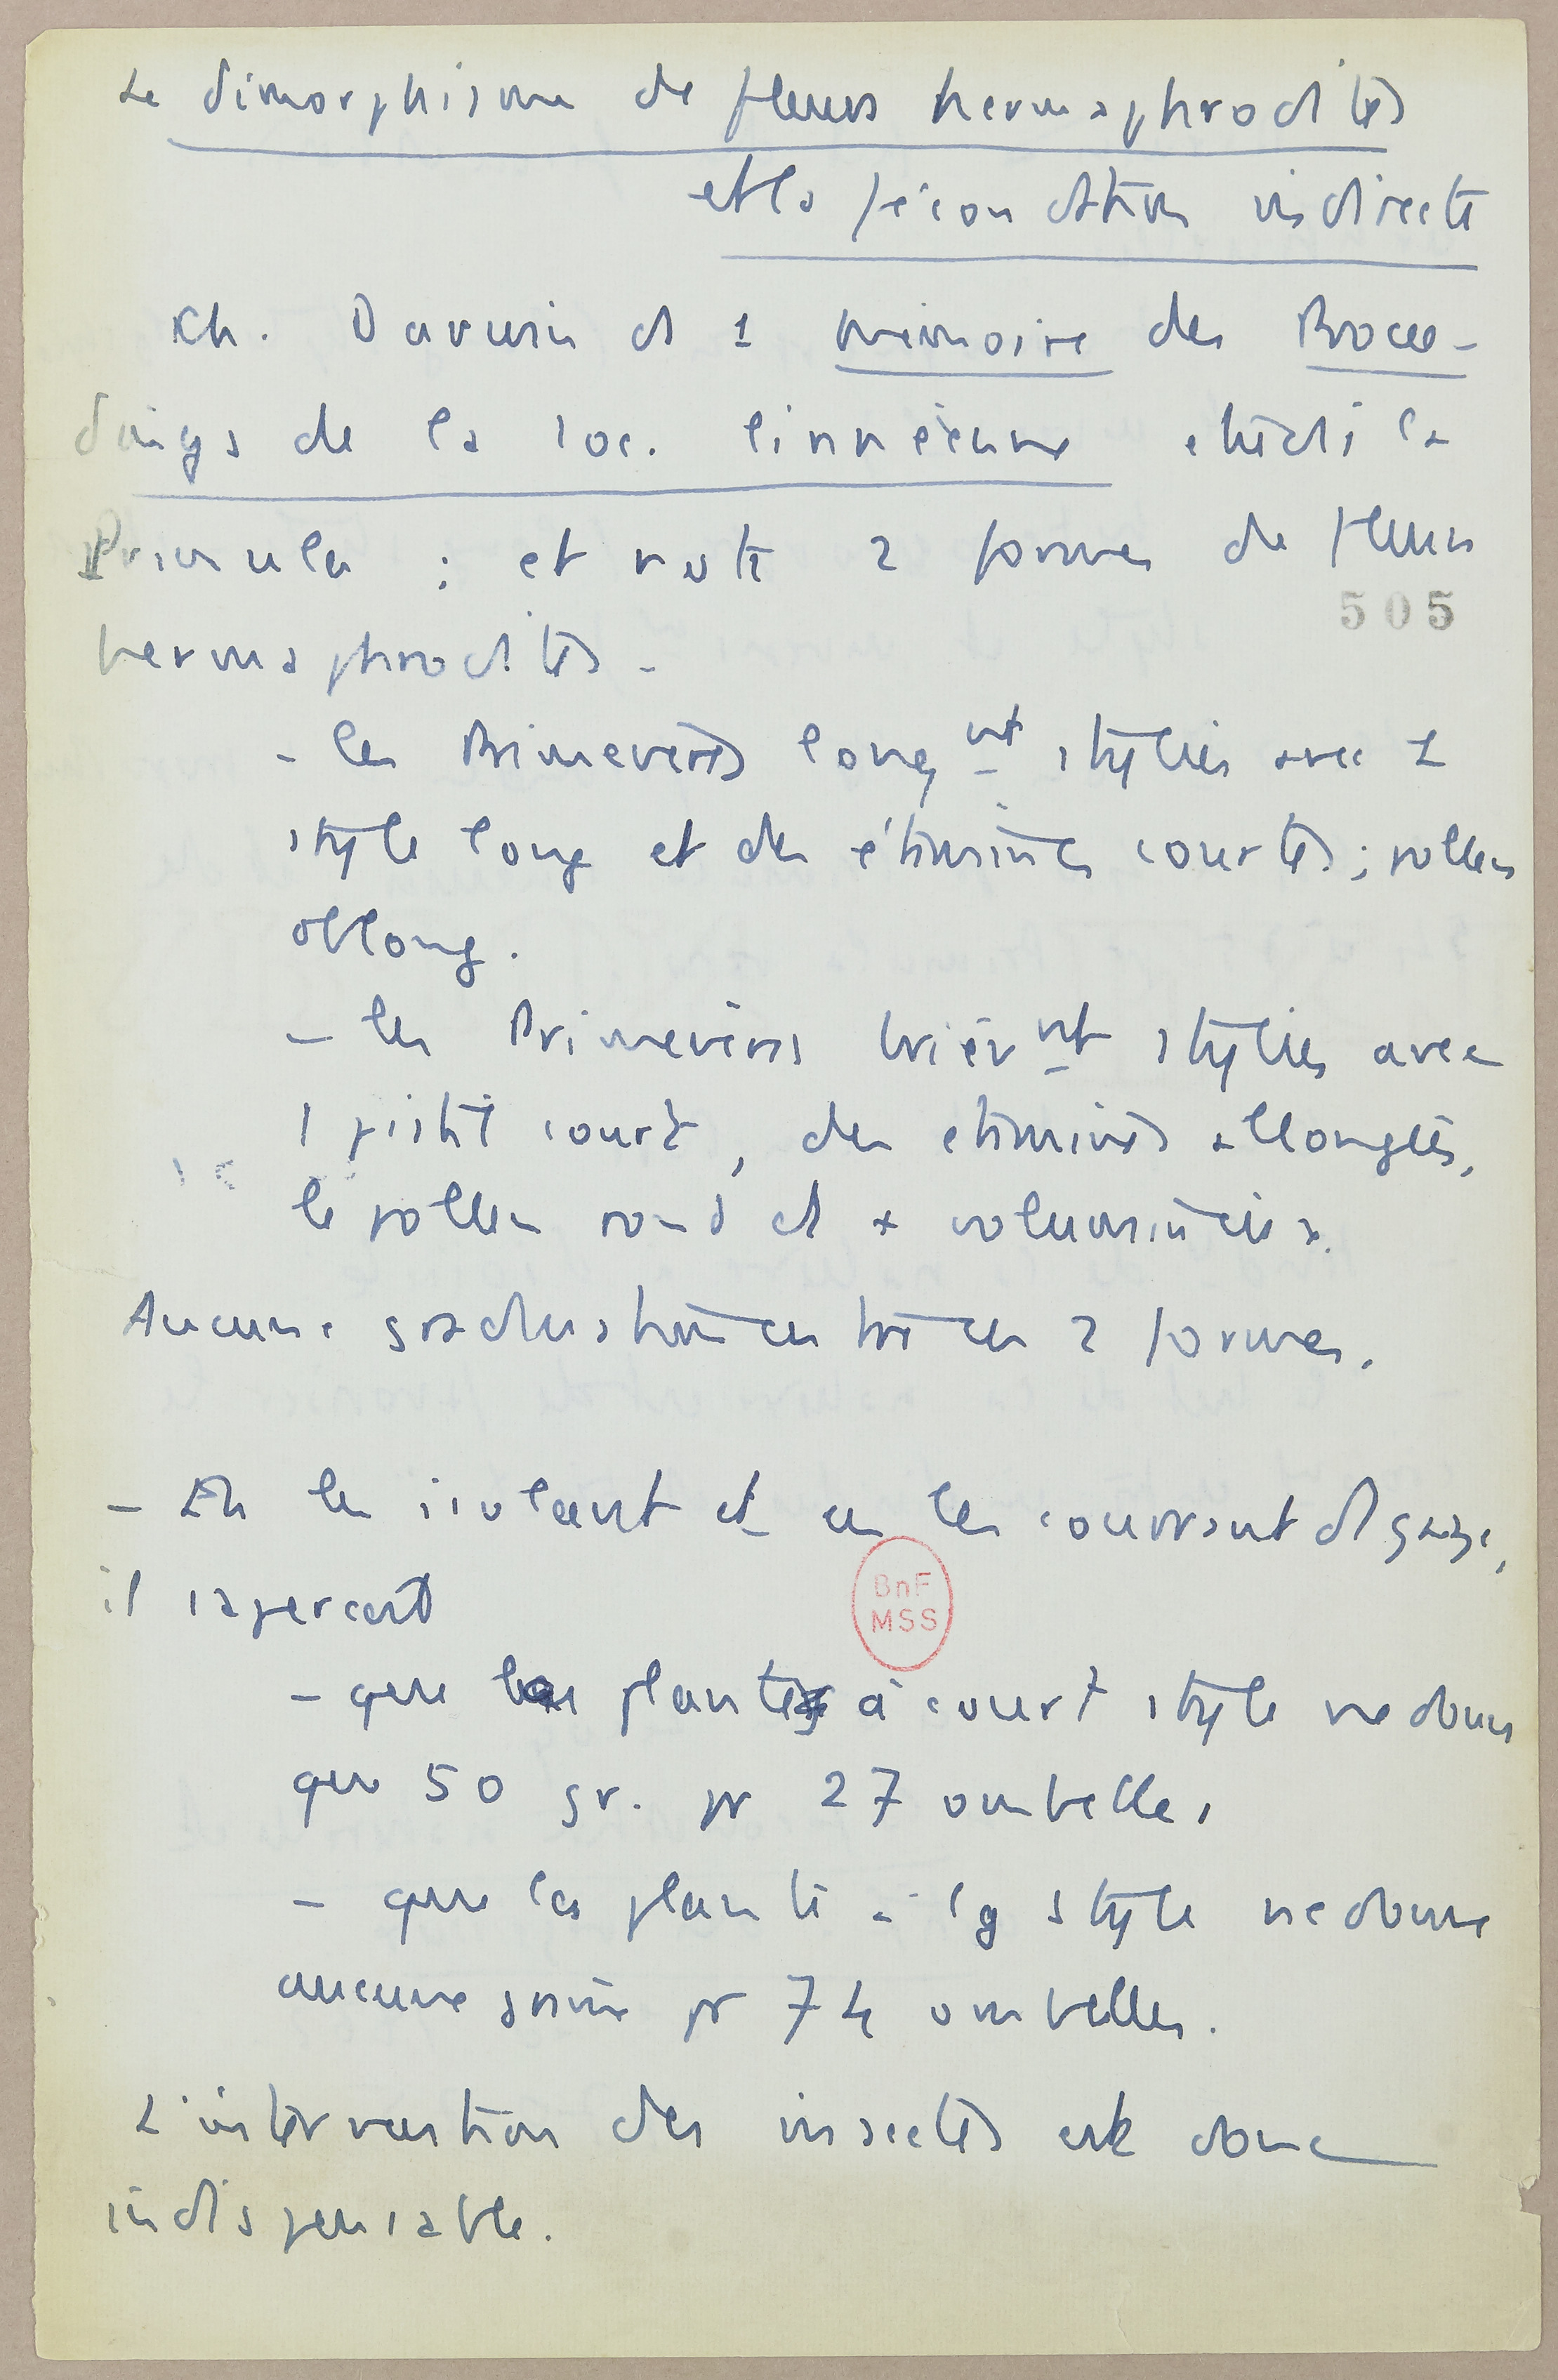 Le dimorphisme de fleurs hermaphrodites
et la fécondation indirecte
Ch. Darwin ds 1 mémoire des Procee-
dings de la soc. linnéenne étudie la
Primula ; et note 2 formes de fleurs
505
hermaphrodites.
- les Primevères longnt stylées avec 1
style long et des étamines courtes ; pollen
oblong.
- les Primevères brièvnt stylées avec
1 pistil court, des étamines allongées,
le pollen rond et + volumineux.
Aucune gradustion entre ces 2 formes.
- En les isolant et en les couvrant d gaze,
il s'aperçoit
- que la plante à court style ne donne
que 50 gr. pr 27 ombelles
- que la plante à lg style ne donne
aucune graine pr 74 ombelles.
L'intervention des insectes est donc
indispensable.
BnF
MSS